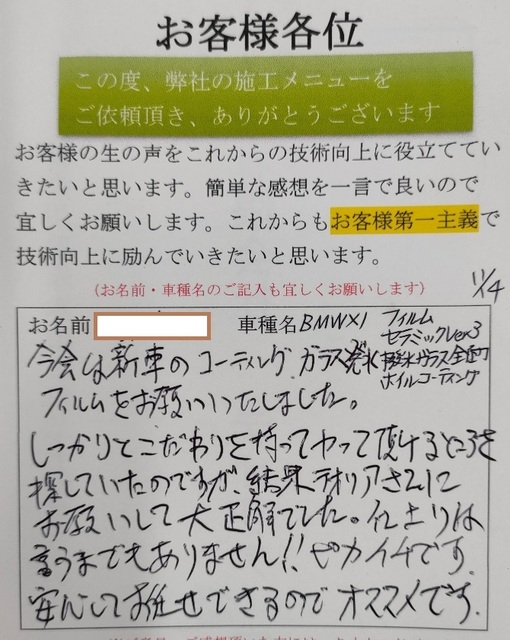 お客様各位
この度、弊社の施工メニューを
ご依頼頂き、ありがとうございます
お客様の生の声をこれからの技術向上に役立ててい
きたいと思います。簡単な感想を一言で良いので
宜しくお願いします。これからもお客様第一主義で
技術向上に励んでいきたいと思います。
(お名前・車種名のご記入も宜しくお願いします)
11/14
お名前 車種名 BMWX1
フィルム
セラミックver3
撥水ガラス全面
ホイルコーティング
今会は新車のコーティング、ガラス発水
フィルムをお願いいたしました。
しっかりとこだわりを持ってやって頂けるところを
探していたのですが、結果テオリアさんに
お願いして大正解でした。仕上りは
言うまでもありません!!ピカイチです。
安心してお任せできるのでオススメです。